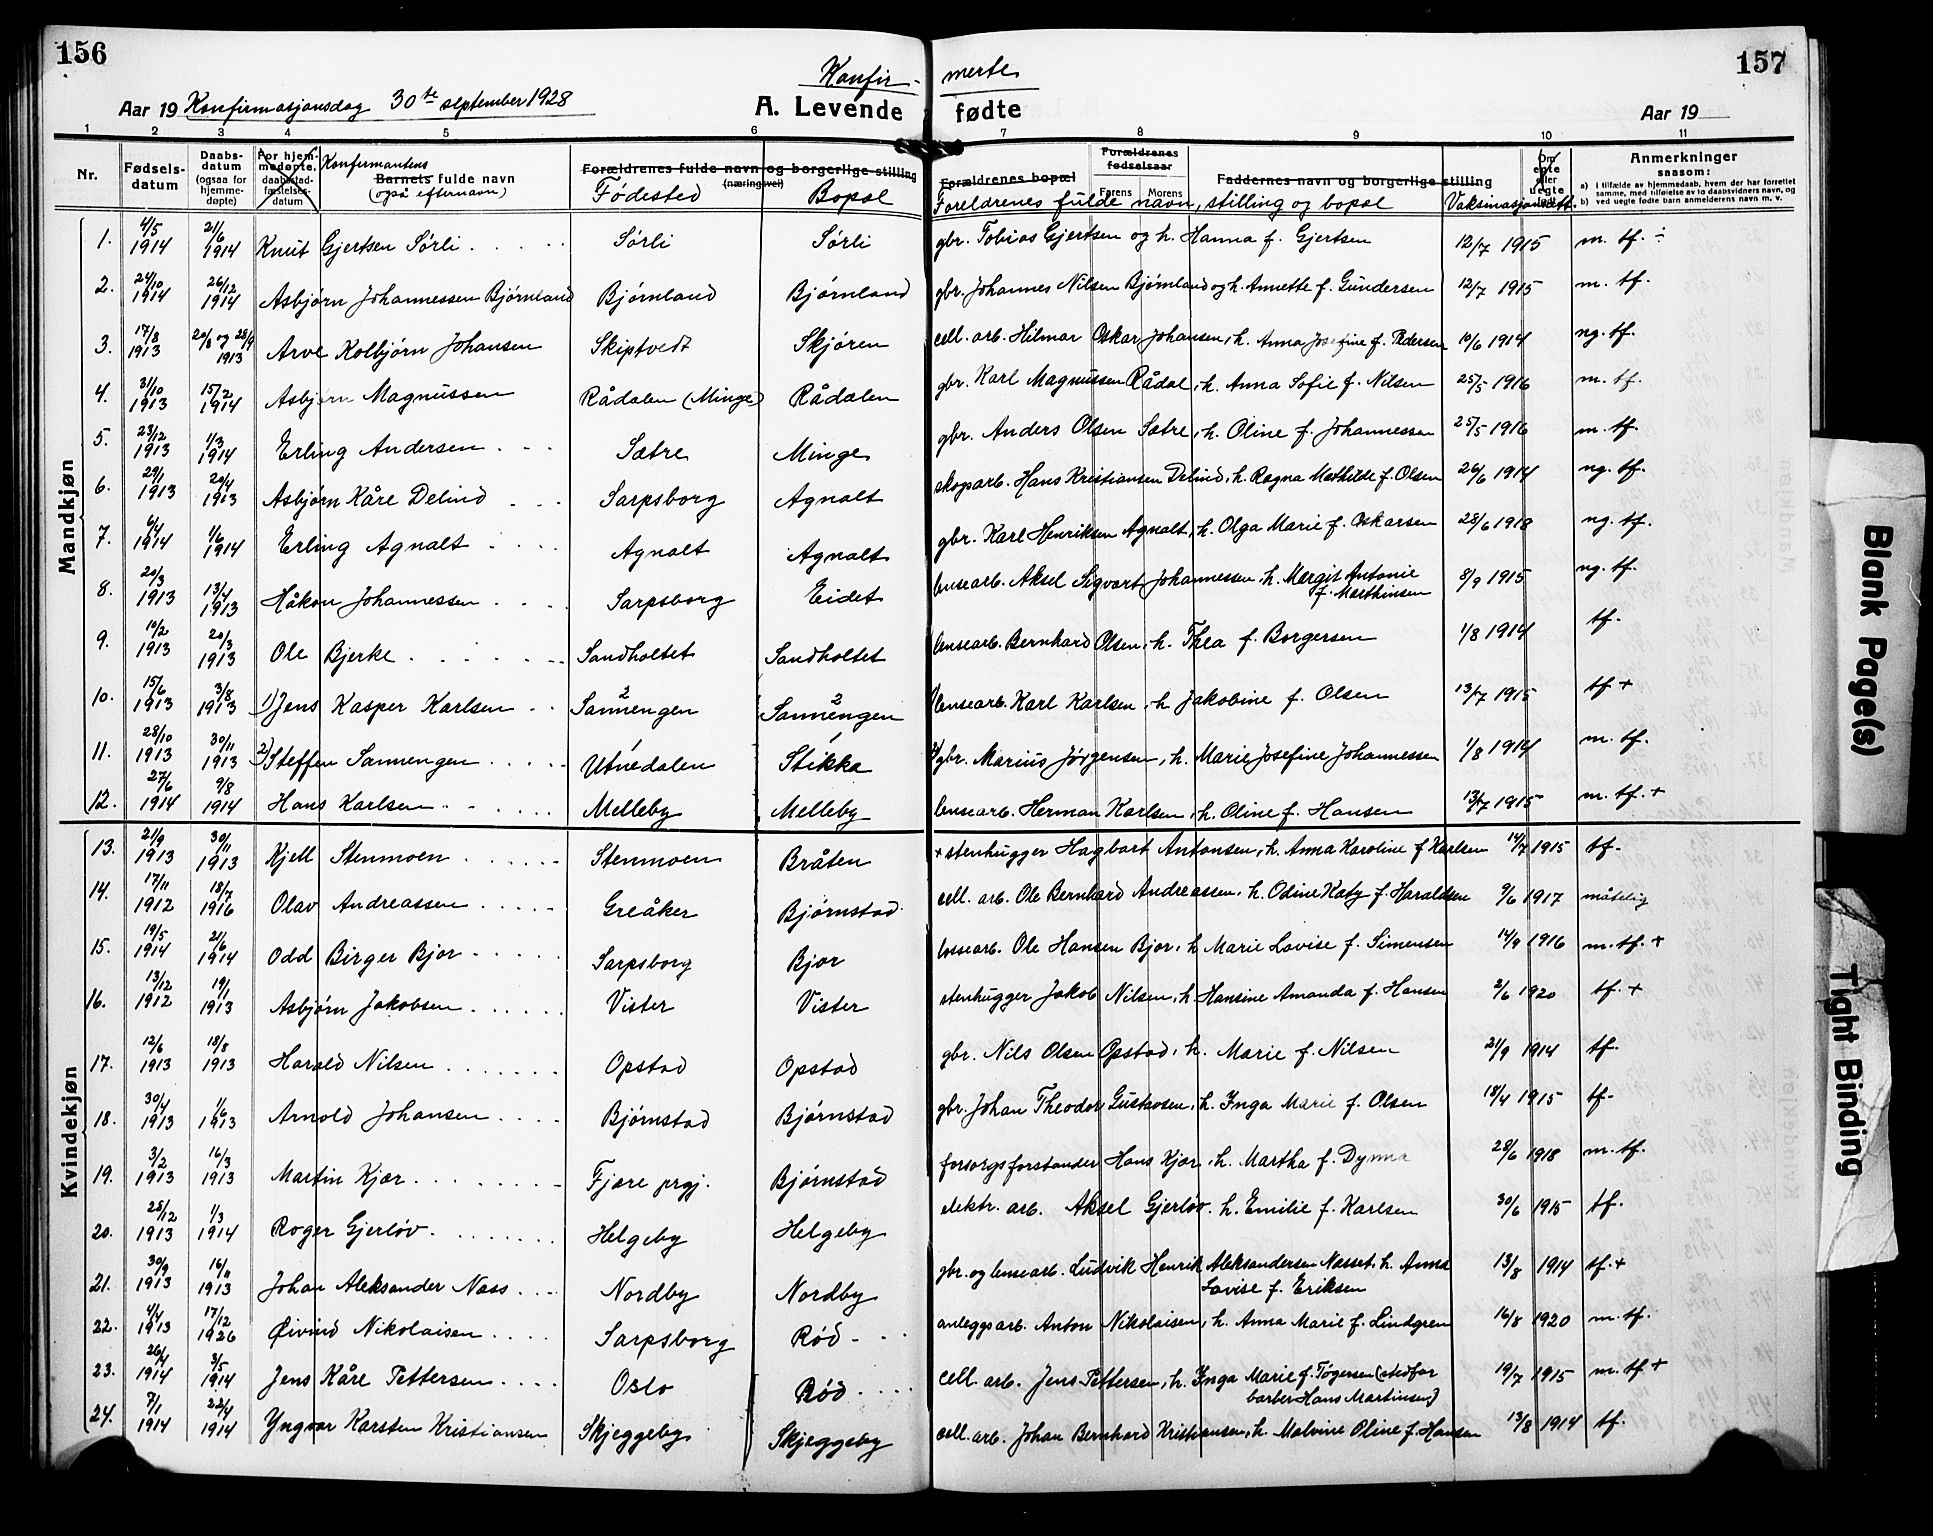 156
157
Konfir- merte
Aar 19 Konfirmasjonsdag 30te september 1928
A. Levende fødte
Aar 19
1 2 3 4 5 6 7 8 9 10 11
Nr. Fødsels-datum Daabs-datum (ogsaa for hjemme-døpte) For hjem-medøpte, daabsstad-fæstelses-datum Konfirmantens Barnets fulde navn (også efternavn) Forældrenes fulde navn og borgerlige stilling (næringsvei) Fødested Bopæl Forældrenes bopæl Forældrenes fødselsaar Farens Morens Faddernes navn og borgerlige stilling Foreldrenes fulde navn, stilling og bopæl Vaksinasjonsatt. Om egte eller uegte født Anmerkninger saasom:
a) I tilfælde av hjemmedaab, hvem der har forrettet samme, med tilføielse av to daabsvidners navn, og
b) ved uegte fødte barn anmelderens navn m. v.
Mandkjøn
1. 4/5 1914 21/6 1914 Knut Gjertsen Sørli Sørli Sørli gbr. Tobias Gjertsen og h. Hanna f. Gjertsen 12/7 1915 m. tf. ÷
2. 24/10 1914 26/12 1914 Asbjørn Johannessen Bjørnland Bjørnland Bjørnland gbr. Johannes Nilsen Bjørnland og h. Annette f. Gundersen 12/7 1915 m. tf.
3. 17/8 1913 20/8 og 28/9 1913 Arve Kolbjørn Johansen Skiptvedt Skjøren cell. arb. Hilmar Oskar Johansen, h. Anna Josefine f. Pedersen 10/6 1914 ng. tf.
4. 31/10 1913 15/2 1914 Asbjørn Magnussen Rådalen (Minge) Rådalen gbr. Karl Magnussen Rådal, h. Anna Sofie f. Nilsen 25/5 1916 m. tf.
5. 23/12 1913 1/3 1914 Erling Andersen Sætre Minge gbr. Anders Olsen Sætre, h. Oline f. Johannessen 25/5 1916 m. tf.
6. 29/1 1913 20/4 1913 Asbjørn Kåre Delind Sarpsborg Agnalt skogsarb. Hans Kristiansen Delind, h. Ragna Mathilde f. Olsen 26/6 1914 ng. tf.
7. 6/4 1914 1/6 1914 Erling Agnalt Agnalt Agnalt gbr. Karl Henriksen Agnalt, h. Olga Marie f. Oskarsen 28/6 1918 ng. tf.
8. 20/3 1913 13/4 1913 Håkon Johannessen Sarpsborg Eidet lensearb. Aksel Sigvart Johannessen, h. Margit Antonie f. Marthinsen 8/9 1915 ng. tf.
9. 10/2 1913 20/3 1913 Ole Bjerke Sandholtet Sandholtet lensearb. Bernhard Olsen, h. Thea f. Borgersen 1/8 1914 tf.
10. 15/6 1913 3/8 1913 1) Jens Kasper Karlsen Sannengen Sannengen 1) lensearb. Karl Karlsen, h. Jakobine f. Olsen 13/7 1915 tf +
11. 28/10 1913 30/11 1913 2) Steffen Sannengen Utnedalen Stikka 2) gbr. Marius Jørgensen, h. Marie Josefine Johannessen 1/8 1914 m. tf.
12. 27/6 1914 9/8 1914 Hans Karlsen Melleby Melleby lensearb. Herman Karlsen, h. Oline f. Hansen 13/7 1915 m. tf. +
Kvindekjøn
13. 21/9 1913 30/11 1913 Kjell Stenmoen Stenmoen Bråten + stenhugger Hagbart Antonsen, h. Anna Karoline f Karlsen 14/7 1915 tf.
14. 17/11 1912 18/7 1916 Olav Andreassen Greåker Bjørnstad cell. arb. Ole Bernhard Andreassen, h. Odine Katy f. Haraldsen 9/6 1917 måtelig
15. 19/5 1914 21/6 1914 Odd Birger Bjor Sarpsborg Bjor lossearb. Ole Hansen Bjor, h Marie Lovise f. Simensen 14/9 1916 m. tf. +
16. 13/12 1912 19/1 1913 Asbjørn Jakobsen Vister Vister stenhugger Jakob Nilsen, h. Hansine Amanda f. Hansen 2/6 1920 tf. +
17. 12/6 1913 18/8 1913 Harald Nilsen Opstad Opstad gbr. Nils Olsen Opstad, h. Marie f. Nilsen 21/9 1914 tf.
18. 30/4 1913 1/6 1913 Arnold Johansen Bjørnstad Bjørnstad gbr. Johan Theodor Gustavsen, h. Inga Marie f. Olsen 18/4 1915 tf.
19. 3/2 1913 16/3 1913 Martin Kjær Fjære prgj. Bjørnstad forsorgsforstander Hans Kjær, h. Martha f. Dynna 28/6 1918 m. tf.
20. 25/12 1913 1/3 1914 Roger Gjerløv Helgeby Helgeby elektr. arb. Aksel Gjerløv. h. Emilie f. Karlsen 30/6 1915 tf.
21. 30/9 1913 16/11 1913 Johan Aleksander Næss Nordby Nordby gbr. og lensearb. Ludvik Henrik Aleksandersen Næsset, h. Anna Lovise f. Eriksen 13/8 1914 tf. +
22. 4/4 1913 17/12 1926 Øivind Nikolaisen Sarpsborg Rød anleggsarb. Anton Nikolaisen, h. Anna Marie f. Lindgren 16/8 1920 m. tf.
23. 26/4 1914 3/5 1914 Jens Kåre Pettersen Oslo Rød cell. arb. Jens Pettersen, h. Inga Marie f. Tøgersen (stedfar barber Hans Martinsen) 19/7 1915 m. tf +
24. 7/1 1914 22/4 1914 Yngvar Karsten Kristiansen Skjeggeby Skjeggeby cell. arb. Johan Bernhard Kristiansen, h. Malvine Oline f. Hansen 13/8 1914 tf.
Blank Page(s)
Tight Binding